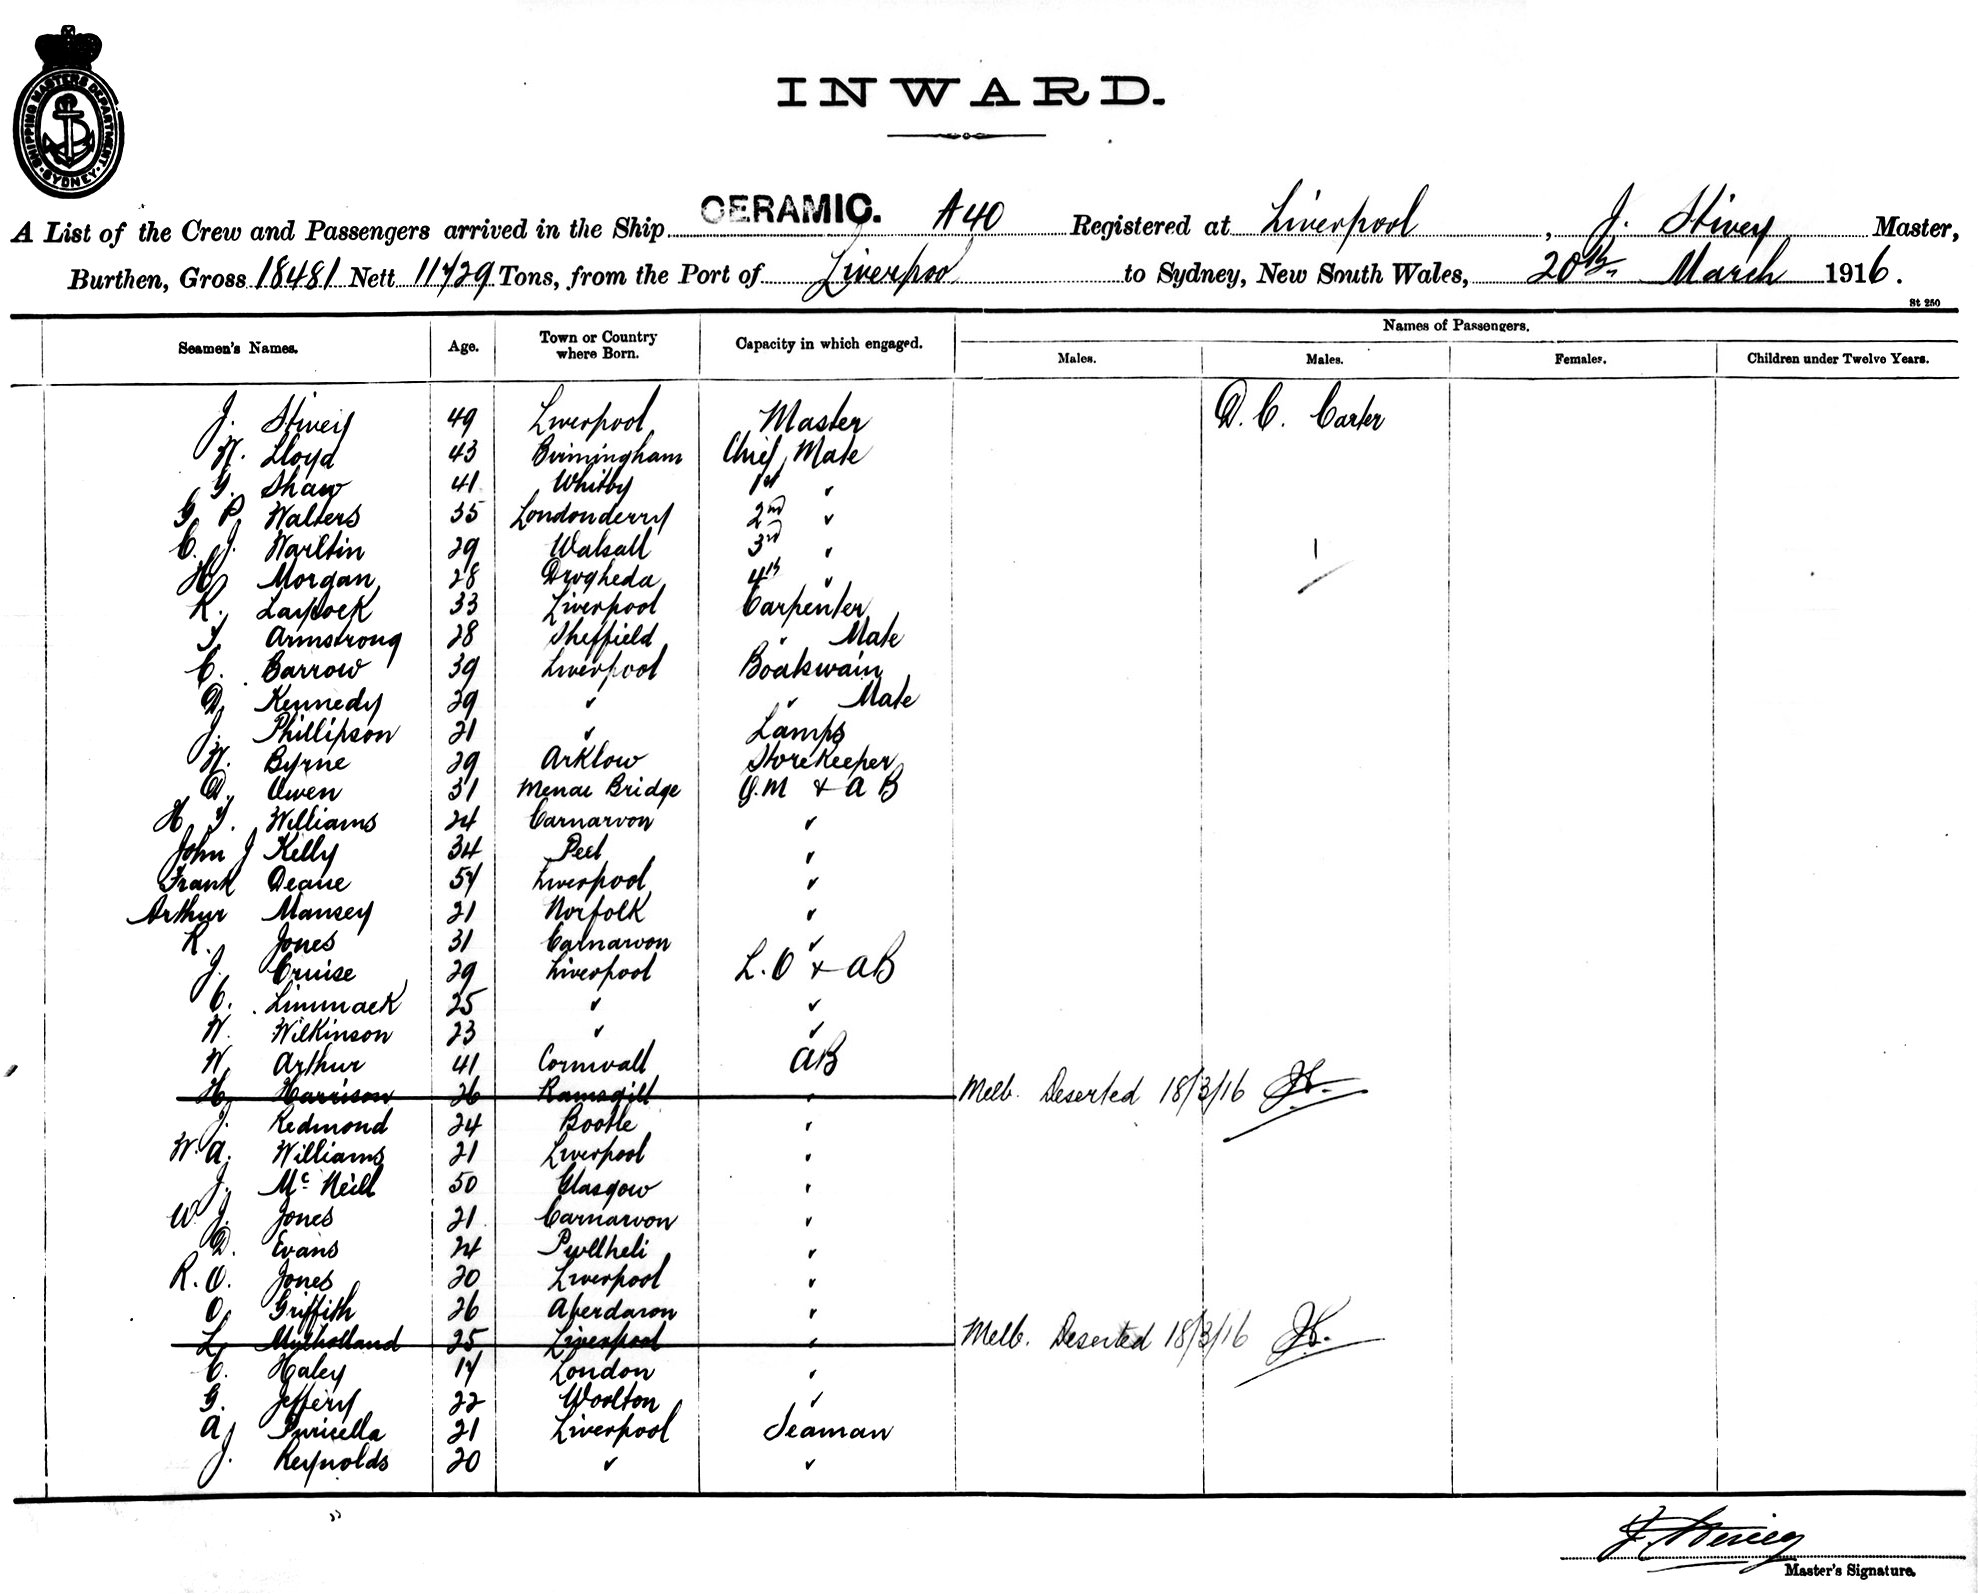 SHIPPING MASTERS DEPARTMENT
SYDNEY
INWARD.
A List of the Crew and Passengers arrived in the Ship CERAMIC. A40 Registered at Liverpool, J. Stivey Master,
Burthen, Gross 18481 Nett 11729 Tons, from the Port of Liverpool to Sydney, New South Wales, 20th March 1916.
St 250
Seamen's Names. Age. Town or Country where Born. Capacity in which engaged. Names of Passengers.
Males. Males. Females. Children under Twelve Years.
J. Stivey 49 Liverpool Master D. C. Carter
W. Lloyd 43 Birmingham Chief Mate
G. Shaw 41 Whitby 1st "
G P Walters 35 Londonderry 2nd "
C. J. Warltin 29 Walsall 3rd "
H Morgan 28 Drogheda 4th "
R. Laycock 33 Liverpool Carpenter
T. Armstrong 28 Sheffield " Mate
C. Barrow 39 Liverpool Boatswain
D. Kennedy 29 " " Mate
J. Phillipson 21 " Lamps
W. Byrne 29 Arklow Storekeeper
D. Owen 31 Menai Bridge Q.M + AB
H T. Williams 24 Carnarvon "
John J Kelly 34 Peel "
Frank Deane 57 Liverpool "
Arthur Mansey 21 Norfolk "
R. Jones 31 Carnarvon "
J. Cruise 29 Liverpool L.O + AB
C. Limmack 25 " "
W. Wilkinson 23 " "
W. Arthur 41 Cornwall AB
H. Harrison 26 Ramsgill " Melb. Deserted 18/3/16 JS.
J. Redmond 24 Bootle "
W. A. Williams 21 Liverpool "
J. McNeill 50 Glasgow "
W J. Jones 21 Carnarvon "
D. Evans 24 Pwllheli "
R. O. Jones 20 Liverpool "
O. Griffith 26 Aberdaron "
L. Mulholland 25 Liverpool " Melb. Deserted 18/3/16 JS.
C. Haley 17 London "
G. Jeffery 22 Woolton "
A. Puricella 21 Liverpool Seaman
J. Reynolds 20 " "
J. Stivey
Master's Signature.